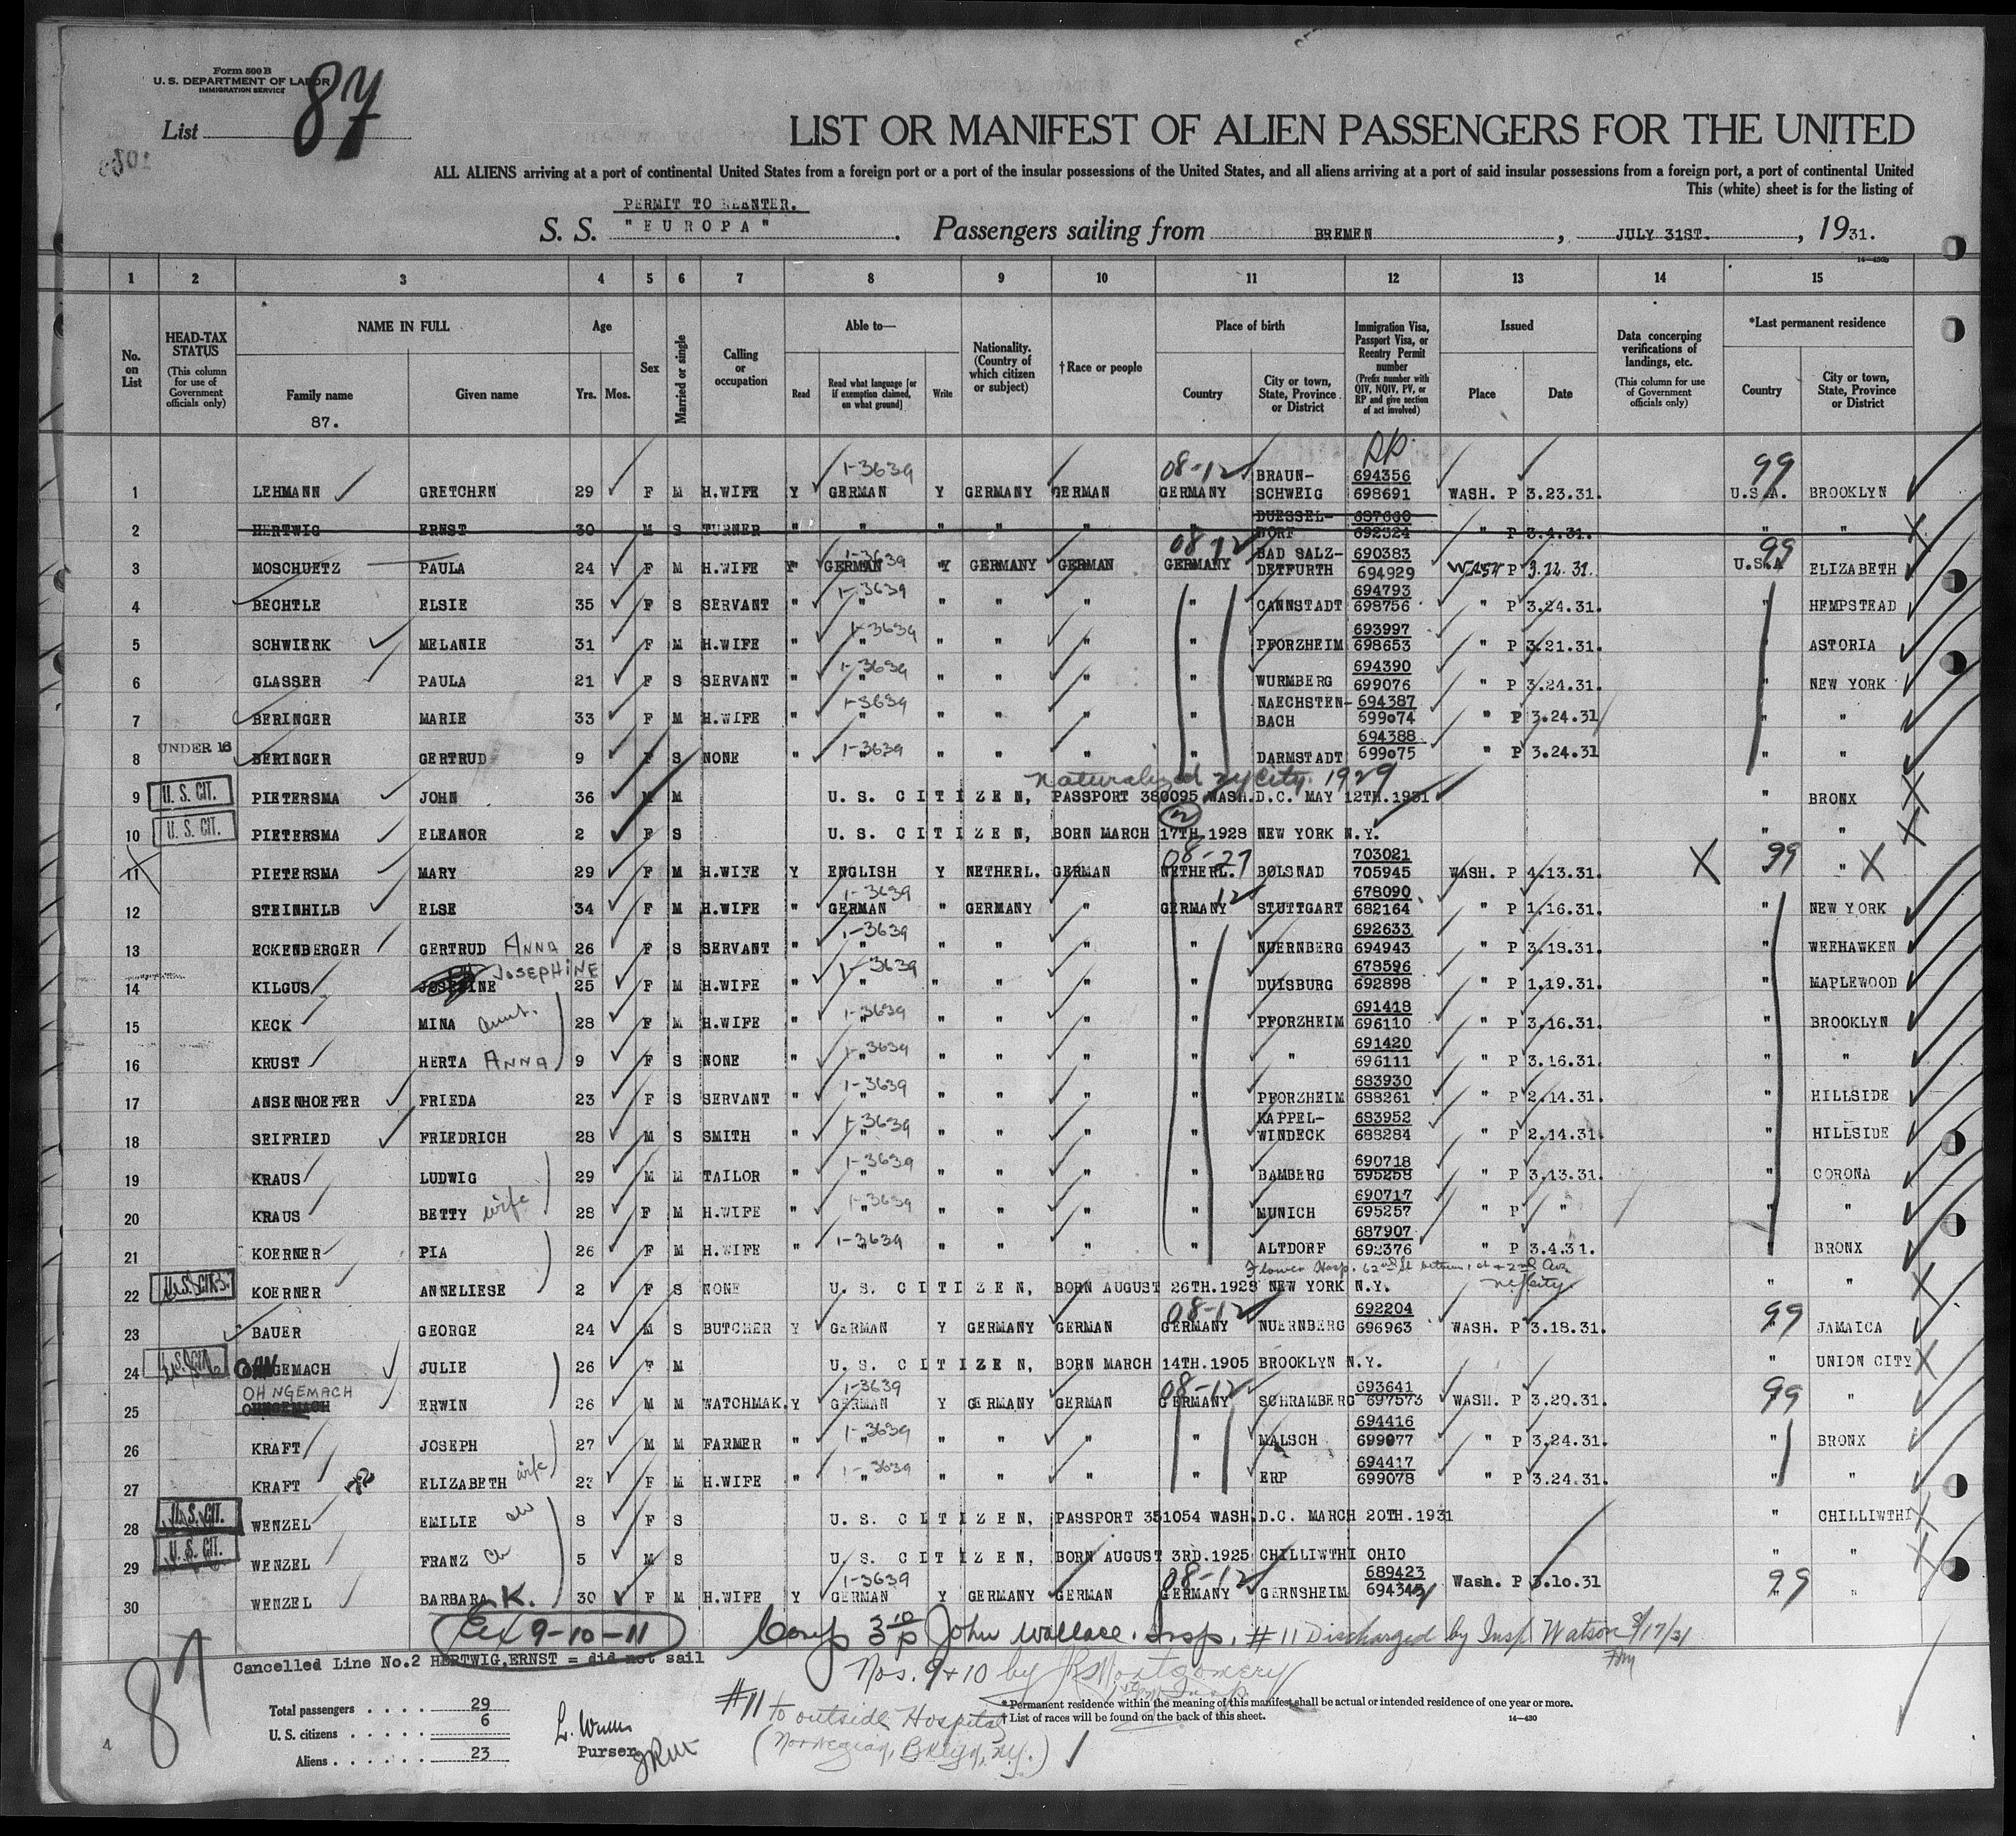 Form 500 B
U. S. DEPARTMENT OF LABOR
IMMIGRATION SERVICE
List 87
LIST OR MANIFEST OF ALIEN PASSENGERS FOR THE UNITED
ALL ALIENS arriving at a port of continental United States from a foreign port or a port of the insular possessions of the United States, and all aliens arriving at a port of said insular possessions from a foreign port, a port of continental United
This (white) sheet is for the listing of
PERMIT TO REENTER.
S. S. "EUROPA" . Passengers sailing from BREMEN , JULY 31ST. , 1931.
14-430b
1 2 3 4 5 6 7 8 9 10 11 12 13 14 15
No. on List
HEAD-TAX STATUS (This column for use of Government officials only)
NAME IN FULL Family name Given name
87.
Age Yrs. Mos.
Sex
Married or single
Calling or occupation
Able to— Read Read what language [or if exemption claimed, on what ground] Write
Nationality. (Country of which citizen or subject)
†Race or people
Place of birth Country City or town, State, Province or District
Immigration Visa, Passport Visa, or Reentry Permit number (Prefix number with QIV, NQIV, PV, or RP and give section of act involved)
Issued Place Date
Data concerning verifications of landings, etc. (This column for use of Government officials only)
*Last permanent residence Country City or town, State, Province or District
1 LEHMANN GRETCHEN 29 F M H.WIFE Y 1-3639 GERMAN Y GERMANY GERMAN 08-12 GERMANY BRAUN-SCHWEIG 694356 698691 WASH. P 3.23.31. 99 U.S.A. BROOKLYN
2 HERTWIG ERNST 30 M S TURNER " " " " " " DUESSEL-DORF 687660 692324 " P 3.4.31. " "
3 MOSCHUETZ PAULA 24 F M H.WIFE Y 1-3639 GERMAN Y GERMANY GERMAN 08-12 GERMANY BAD SALZ-DETFURTH 690383 694929 WASH P 3.12.31. 99 U.S.A ELIZABETH
4 BECHTLE ELSIE 35 F S SERVANT " 1-3639 " " " " " CANNSTADT 694793 698756 " P 3.24.31. " HEMPSTEAD
5 SCHWIERK MELANIE 31 F M H.WIFE " 1-3639 " " " " " PFORZHEIM 693997 698653 " P 3.21.31. " ASTORIA
6 GLASSER PAULA 21 F S SERVANT " 1-3639 " " " " " WURMBERG 694390 699076 " P 3.24.31. " NEW YORK
7 BERINGER MARIE 33 F M H.WIFE " 1-3639 " " " " " NAECHSTEN-BACH 694387 699074 " P 3.24.31 " "
8 UNDER 16 BERINGER GERTRUD 9 F S NONE " 1-3639 " " " " " DARMSTADT 694388 699075 " P 3.24.31 " "
Naturalized NY City. 1929
9 U. S. CIT. PIETERSMA JOHN 36 M M U. S. CITIZEN, PASSPORT 380095 WASH.D.C. MAY 12TH.1931 " BRONX
10 U. S. CIT. PIETERSMA ELEANOR 2 F S U. S. CITIZEN, BORN MARCH 17TH.1928 NEW YORK N.Y. " "
11 PIETERSMA MARY 29 F M H.WIFE Y ENGLISH Y NETHERL. GERMAN 08-27 NETHERL. BOLSNAD 703021 705945 WASH. P 4.13.31. X 99 " X
12 STEINHILB ELSE 34 F M H.WIFE " 1-3639 GERMAN " GERMANY " 12 GERMANY STUTTGART 678090 682164 " P 1.16.31. " NEW YORK
13 ECKENBERGER GERTRUD ANNA 26 F S SERVANT " 1-3639 " " " " " NUERNBERG 692633 694943 " P 3.18.31. " WEEHAWKEN
14 KILGUS JOSEFINE JOSEPHINE 25 F M H.WIFE " 1-3639 " " " " DUISBURG 678596 692898 " P 1.19.31. " MAPLEWOOD
15 KECK MINA aunt. 28 F M H.WIFE " 1-3639 " " " " " PFORZHEIM 691418 696110 " P 3.16.31. " BROOKLYN
16 KRUST HERTA ANNA 9 F S NONE " 1-3639 " " " " " " 691420 696111 " P 3.16.31. " "
17 ANSENHOEFER FRIEDA 23 F S SERVANT " 1-3639 " " " " " PFORZHEIM 683930 688261 " P 2.14.31. " HILLSIDE
18 SEIFRIED FRIEDRICH 28 M S SMITH " 1-3639 " " " " " KAPPEL-WINDECK 683952 688284 " P 2.14.31. " HILLSIDE
19 KRAUS LUDWIG 29 M M TAILOR " 1-3639 " " " " " BAMBERG 690718 695258 " P 3.13.31. " CORONA
20 KRAUS BETTY wife 28 F M H.WIFE " 1-3639 " " " " " MUNICH 690717 695257 " P " " "
21 KOERNER PIA 26 F M H.WIFE " 1-3639 " " " " " ALTDORF 687907 692376 " P 3.4.31. " BRONX
Flower Hosp. 62nd St between 1st & 2nd Ave NY City
22 U.S. CIT. KOERNER ANNELIESE 2 F S NONE U. S. CITIZEN, BORN AUGUST 26TH.1928 NEW YORK N.Y. " "
23 BAUER GEORGE 24 M S BUTCHER Y GERMAN Y GERMANY GERMAN 08-12 GERMANY NUERNBERG 692204 696963 WASH. P 3.18.31. 99 " JAMAICA
24 U.S. CIT. OHNGEMACH JULIE 26 F M U. S. CITIZEN, BORN MARCH 14TH.1905 BROOKLYN N.Y. " UNION CITY
25 OHNGEMACH ERWIN 26 M M WATCHMAK. Y 1-3639 GERMAN Y GERMANY GERMAN 08-12 GERMANY SCHRAMBERG 693641 697573 WASH. P 3.20.31. 99 "
26 KRAFT JOSEPH 27 M M FARMER " 1-3639 " " " " " MALSCH 694416 699077 " P 3.24.31. " BRONX
27 KRAFT ELIZABETH wife 23 F M H.WIFE " 1-3639 " " " " " ERP 694417 699078 " P 3.24.31. " "
28 U. S. CIT. WENZEL EMILIE 8 F S U. S. CITIZEN, PASSPORT 351054 WASH.D.C. MARCH 20TH.1931 " CHILLIWTHI
29 U. S. CIT. WENZEL FRANZ 5 M S U. S. CITIZEN, BORN AUGUST 3RD.1925 CHILLIWTHI OHIO " "
30 WENZEL BARBARA K. 30 F M H.WIFE Y 1-3639 GERMAN Y GERMANY GERMAN 08-12 GERMANY GERNSHEIM 689423 Wash. P 3.10.31 99 " "
Ex 9-10-11
John Wallace. Insp. #11 Discharged by Insp Watson 8/17/31
Cancelled Line No.2 HERTWIG,ERNST = did not sail
Nos. 9 & 10 by JR Montgomery
Insp.
87
Total passengers . . . . 29
U. S. citizens . . . . . 6
Aliens . . . . . . 23
Purser
JRM
#11 to outside Hospital
(Norwegian, Bklyn, N.Y.)
* Permanent residence within the meaning of this manifest shall be actual or intended residence of one year or more.
† List of races will be found on the back of this sheet.
14-430